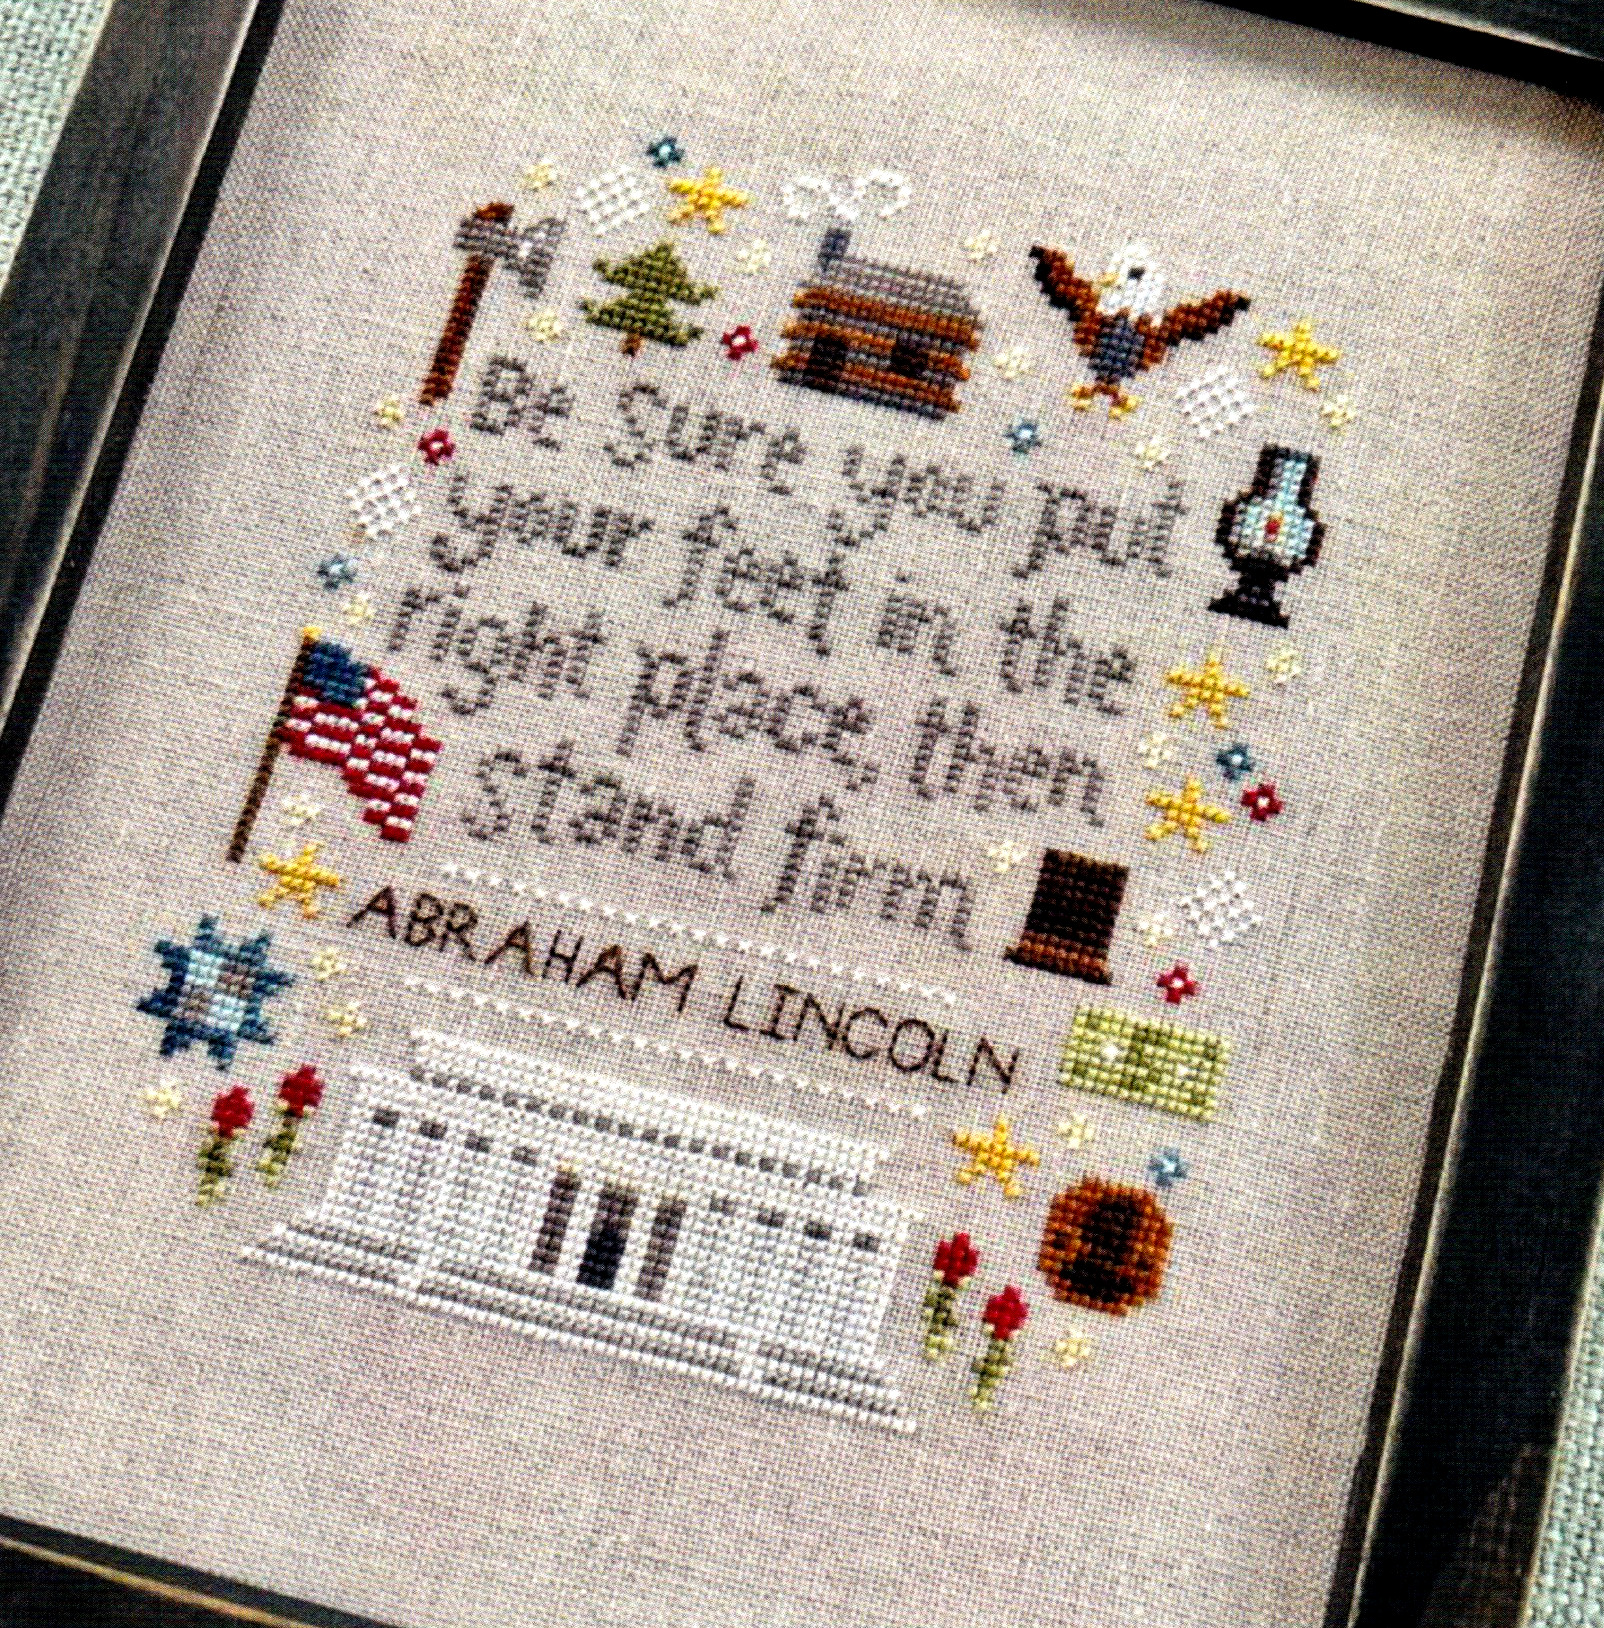 Be Sure you put
your feet in the
right place, then
stand firm
ABRAHAM LINCOLN